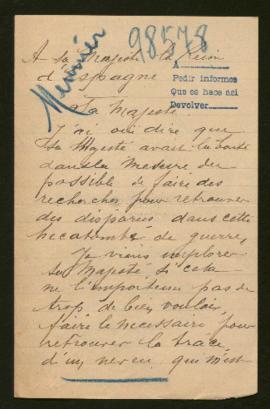 98578
Meunier
A
Pedir informes
Que se hace asi
Devolver
A sa Majesté la Reine
d'Espagne
Sa Majesté
J'ai oui dire que
Sa Majesté avait la bonté
dans la mesure du
possible de faire des
recherches pour retrouver
des disparus dans cette
hecatombe de guerre,
Je viens implorer
Sa Majesté si cela
ne l'importune pas de
trop de bien vouloir
faire le necessaire pour
retrouver la trace
d'un neveu qui m'est